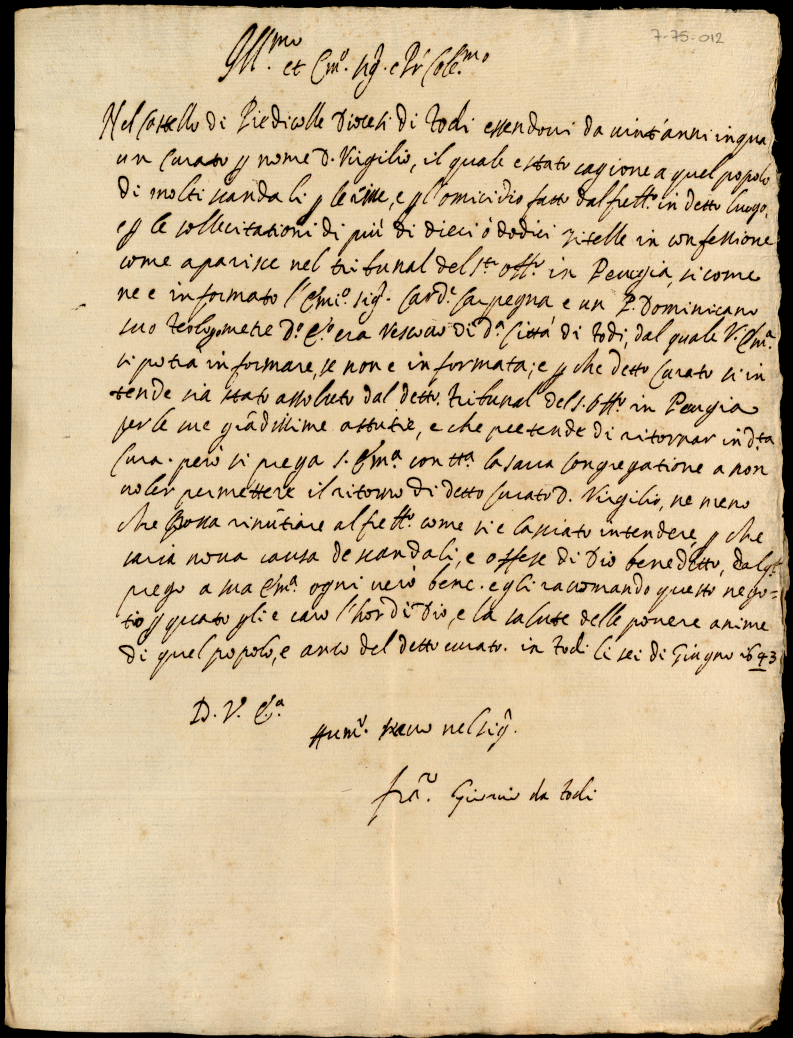 7-75-012
Ill.mo et Em.o sig. e Pr Col.mo
Nel Castello di Piedicolle Diocesi di Todi essendovi da vint'anni in qua
un Curato p nome D. Virgilio, il quale e stato cagione a quel popolo
di molti scandali p le risse, e p l'omicidio fatto dal frēllo in detto luogo,
e p le sollecitationi di più di dieci ò dodici zitelle in confessione
come aparisce nel tribunal del S.to Off.o in Perugia, si come
ne e informato l'Em.o sig. Card.e Carpegna e un P. Dominicano
suo Teologo mētre D.o E.o era Vescovo di D.a Città di Todi, dal quale V. Em.a
si potrà informare, se non e informata; e p che detto Curato si in
tende sia stato assoluto dal detto Tribunal del S. Off.o in Perugia
per le sue grādissime astutie, e che pretende di ritornar in d.ta
Cura. però si prega S. Em.a con tt.a la sacra Congregatione a non
voler permettere il ritorno di detto Curato D. Virgilio, ne meno
che possa rinūtiare al frēllo come si e lasciato intendere, p che
saria nova causa de scandali, e offese di Dio benedetto, dal q.l
prego a sua Em.a ogni vero bene. e gli racomando questo nego=
tio p quāto gli e caro l'honor di Dio, e la salute delle povere anime
di quel popolo, e anco del detto curato. in Todi li sei di Giugno 1643
D. V. E.a
Hum. servo nel sig.
fra da Todi